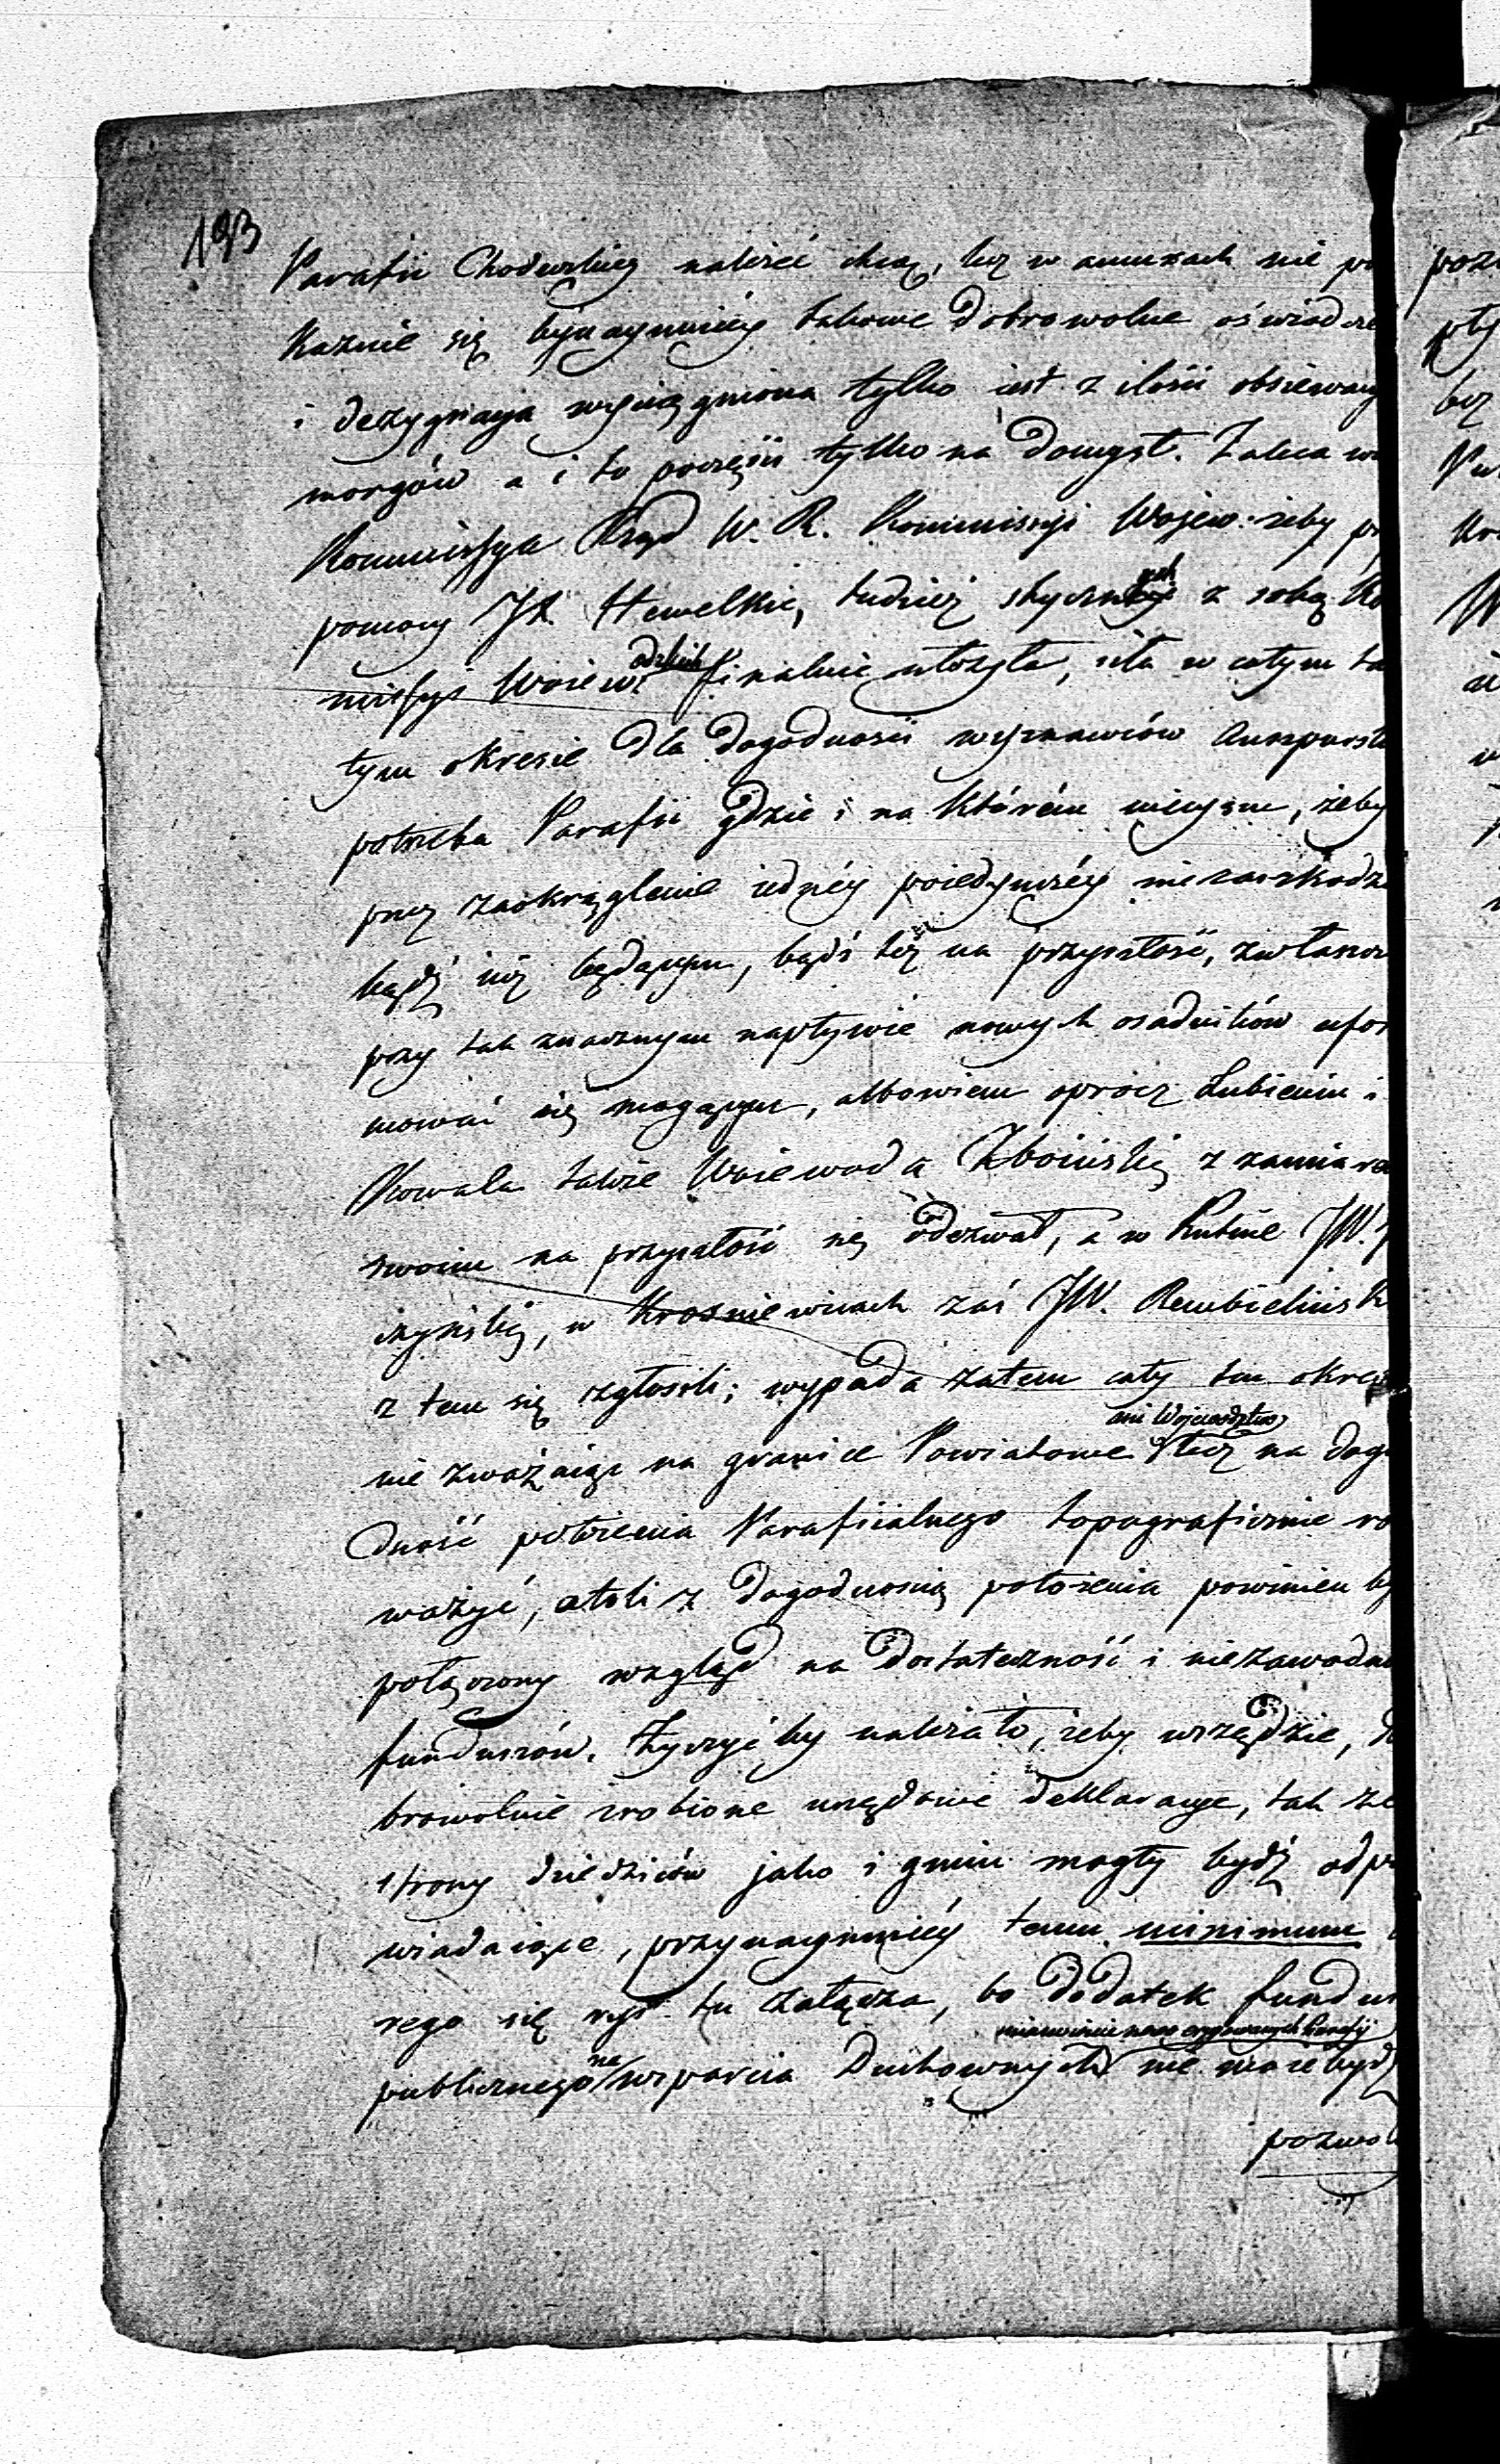 193
Parafii Chodeckiey należeć chcą, lecz w annexach nie po
kaznie się bynaymniéy takowe dobrowolne oświadcze
i dezygnacya wyciągniona tylko iest z ilości obsiewany
morgów a i to poczęści tylko na domysł. Zaleca
Kommissya Rząd W. R. Kommissyi Wojew. żeby
pomocy JX. Hewelkie, tudzież stycznych z sobą Ko
missyi Woiewódzkich finalnie ułożyła, ile w całym
tym okresie dla dogodności wyznawców Auszpurskie
potrzeba Parafii gdzie i na którém mieyscu, żeby
przez zaokrąglenie iednéy poiedyńczéy niezaszkodz
bądź iuż będącym, bądź też na przyszłość, zwłaszcz
przy tak znacznym napływie nowych osadników ufor
mować się mogącym, albowiem oprócz Lubienia i
Kowala także Woiewoda Zboiński z zamiarem
swoim na przyszłość się odezwał, a w Kutnie JW.
czyński, w Krosniewicach zaś JW. Rembielinsk
z tem się zgłosili; wypada zatem cały ten okrąg
nie zważaiąc na granice Powiatowe ani Województw lecz na dogo
dność położenia Parafiialnego topograficznie ro
ważyć, atoli z dogodnością położenia powinien by
połączony wzgląd na dostateczność i niezawodno
funduszów. Życzyć by należało, żeby wszędzie, do
browolnie zrobione urzędowe deklaracye, tak ze
strony dziedziców jako i gmin mogły bydź odpo
wiadaiące, przynaymniéy temu minimum
rego się rys tu załącza, bo dodatek fundus
publicznego na wsparcia Duchownych mianowicie nowo erygowanych Parafij nie może bydź
pozwol